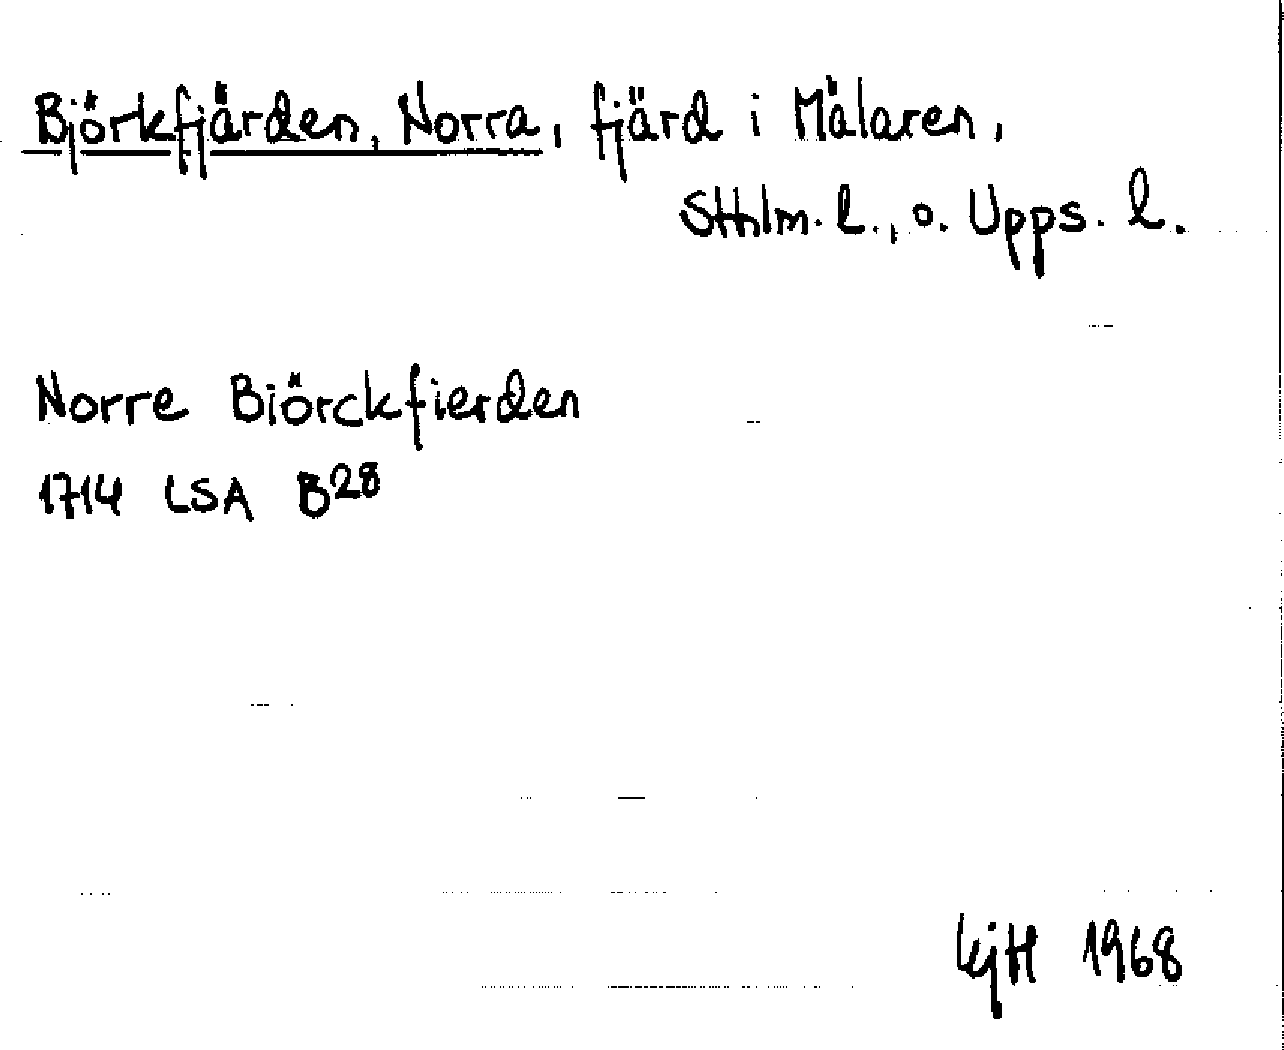 Björkfjärden, Norra, fjärd i Mälaren,
Sthlm. l., o. Upps. l.
Norre Biörckfierden
1714 LSA B28
KjH 1968